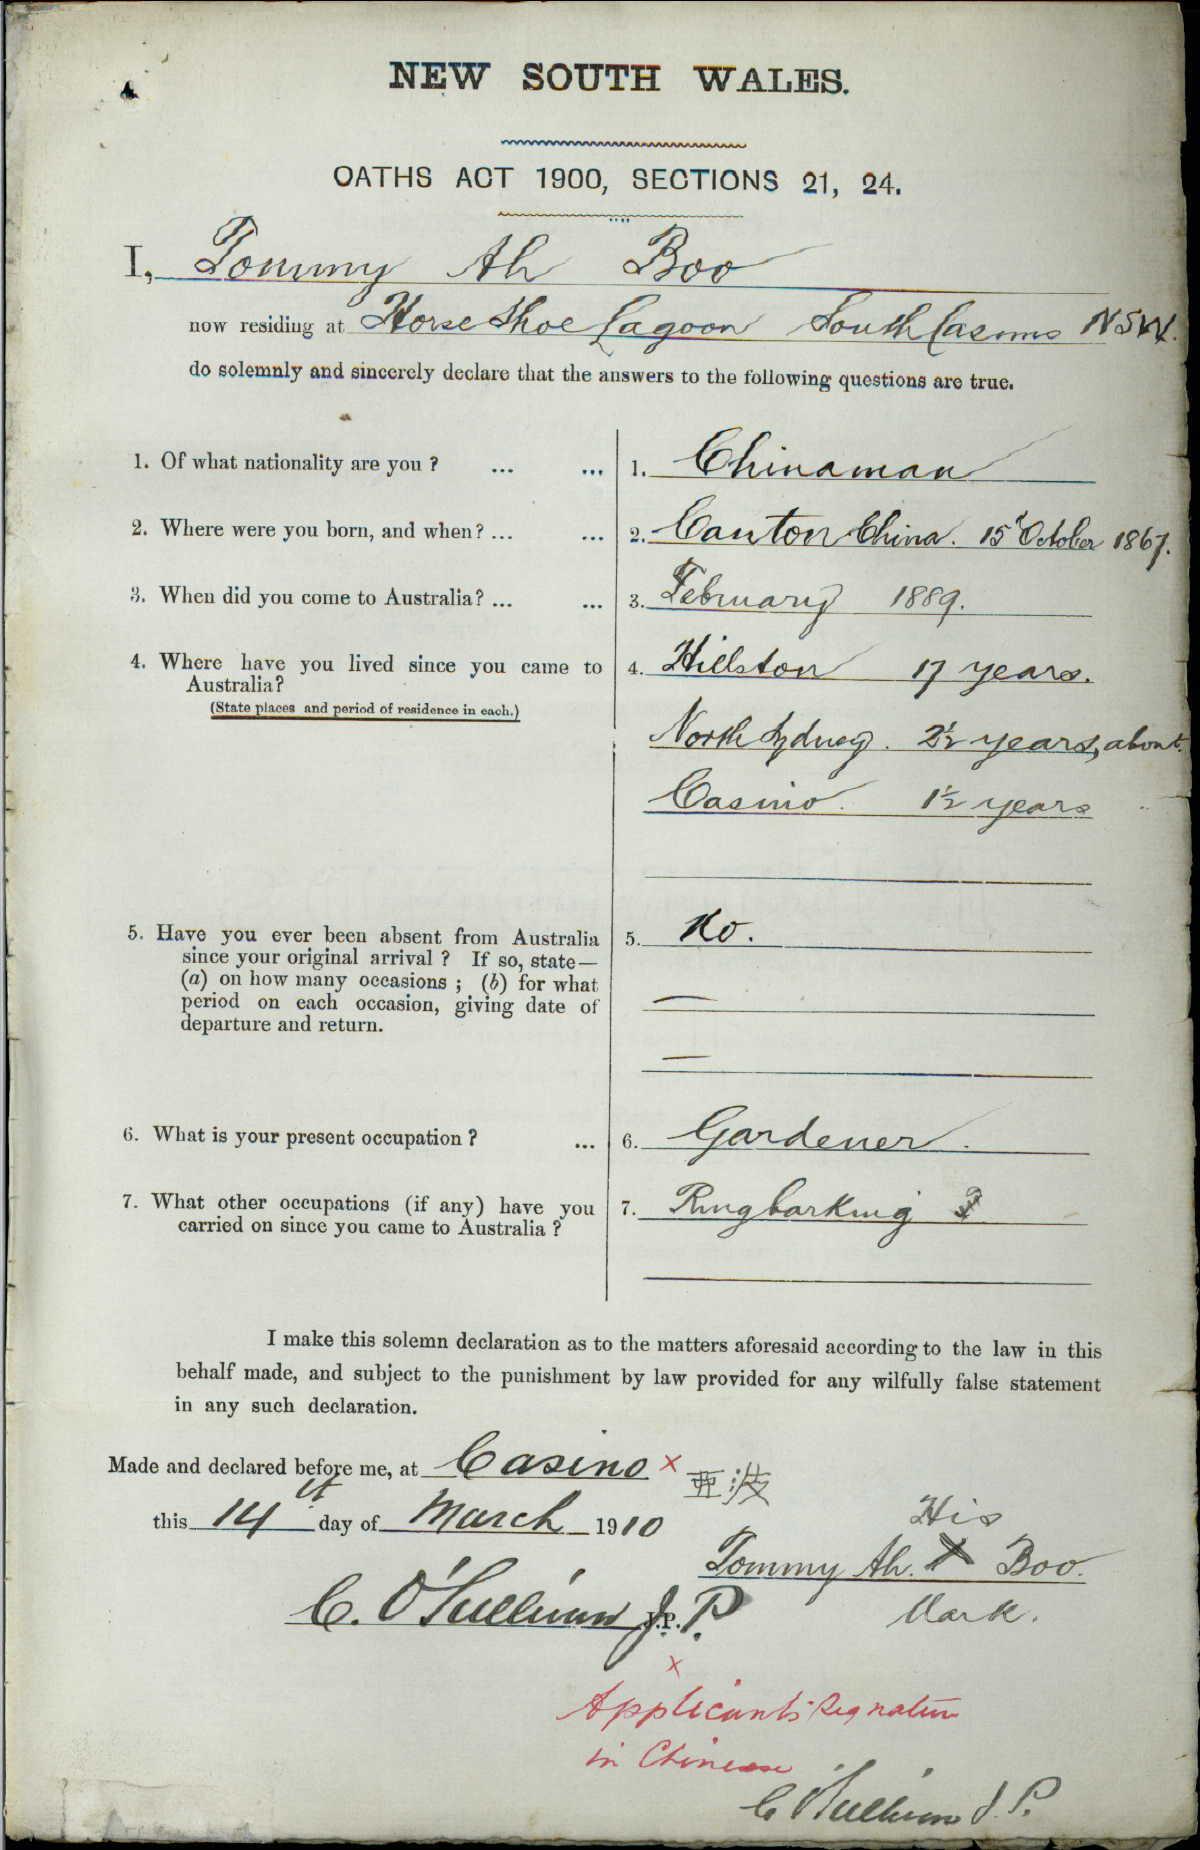 NEW SOUTH WALES.
OATHS ACT 1900, SECTIONS 21, 24.
I, Tommy Ah Boo
now residing at Horse Shoe Lagoon South Casino NSW.
do solemnly and sincerely declare that the answers to the following questions are true.
1. Of what nationality are you ? ... ... 1. Chinaman
2. Where were you born, and when? ... ... 2. Canton China. 15t October 1867.
3. When did you come to Australia? ... ... 3. February 1889.
4. Where have you lived since you came to 4. Hillston 17 years.
Australia?
(State places and period of residence in each.)
North Sydney. 2½ years, about.
Casino. 1½ years "
5. Have you ever been absent from Australia 5. No.
since your original arrival ? If so, state—
(a) on how many occasions ; (b) for what —
period on each occasion, giving date of
departure and return.
—
6. What is your present occupation ? ... 6. Gardener.
7. What other occupations (if any) have you 7. Ringbarking
carried on since you came to Australia ?
I make this solemn declaration as to the matters aforesaid according to the law in this
behalf made, and subject to the punishment by law provided for any wilfully false statement
in any such declaration.
Made and declared before me, at Casino x 亜波
this 14th day of March 1910
His
Tommy Ah. X Boo.
Mark.
C. O'Sullivan J.P. J.P.
x
Applicants Signature
in Chinese
C O'Sullivan J.P.